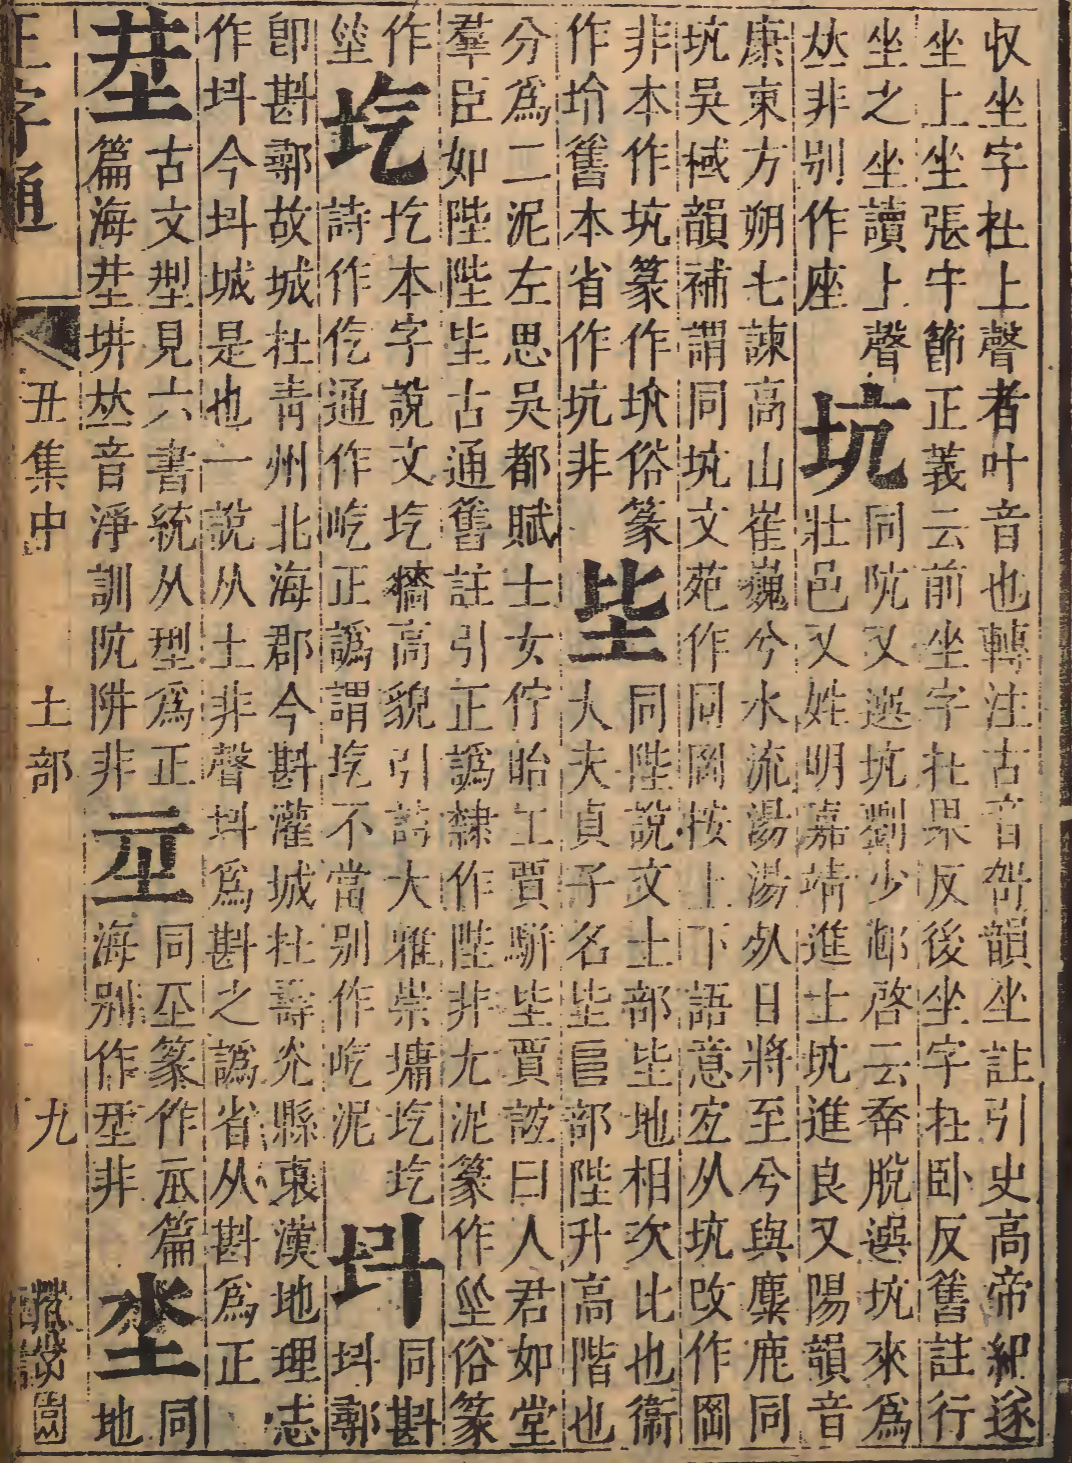 収坐字在上聲者叶音也轉注古音哿韻坐註引史高帝紀遂
坐上坐張守節正義云前坐字在果反後坐字在卧反舊註行
坐之坐讀上聲同阬又遜坑劉少邮啓云奔脫遜坑來爲
𠀤非别作座
坑
壯邑又姓明嘉靖進士坑進良又陽韻音
康東方朔七諫高山崔巍兮水流湯湯死日將至兮與麋鹿同
坑吳棫韻補謂同坑文苑作同岡按上下語意宐从坑改作岡
非本作坑篆作坈俗篆
作坅舊本省作坑非
坒
同陛說文土部坒地相次比也衞
大夫貞子名坒𨸏部陛升高階也
分爲二泥左思吳都賦士女佇眙工賈駢坒賈誼曰人君如堂
羣臣如陛陛坒古通舊註引正譌隸作陛非尤泥篆作坒俗篆
作
坐
圪
圪本字說文圪牆高貌引詩大雅崇墉圪圪
詩作仡通作屹正譌謂圪不當别作屹泥
㘰
同斟
㘰鄩
卽斟鄩故城在青州北海郡今斟灌城在壽光縣東漢地理志
作㘰今㘰城是也一說从土非聲㘰爲斟之譌省从斟爲正
坓
古文型見六書統从型爲正
篇海坓坋𠀤音淨訓阬阱非
坕
同坙篆作坕篇
海别作型非
坔
同
地
正字通
丑集中
土部
九